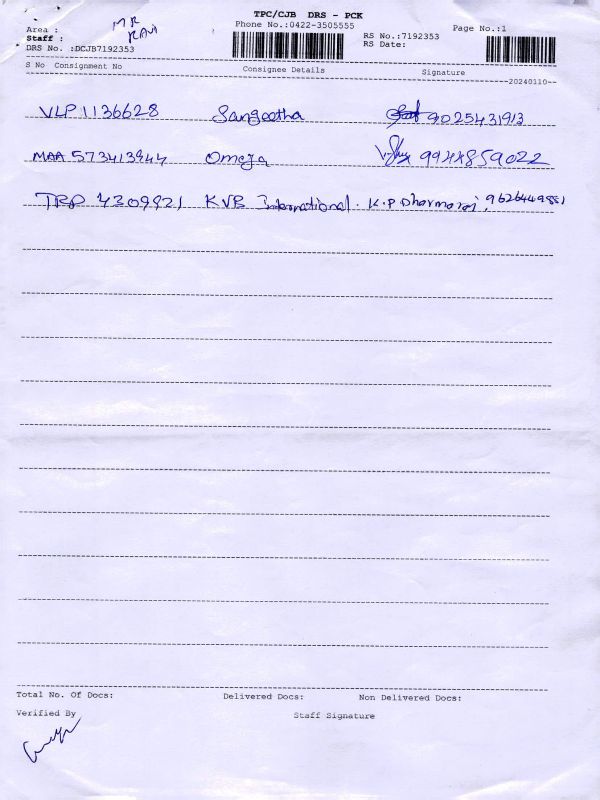 TPC/CJB DRS - PCK
Area : MR Phone No.:0422-3505555 RS No.:7192353 Page No.:1
Staff : RAVI RS Date:
DRS No. :DCJB7192353
S No Consignment No Consignee Details Signature
20240110
VLP1136628 Sangeetha 9025431913
MAA 573413944 Omega 9944859022
TRP 4309921 KVB International. K.P Dharmaraj, 9626449881
Total No. Of Docs: Delivered Docs: Non Delivered Docs:
Verified By Staff Signature